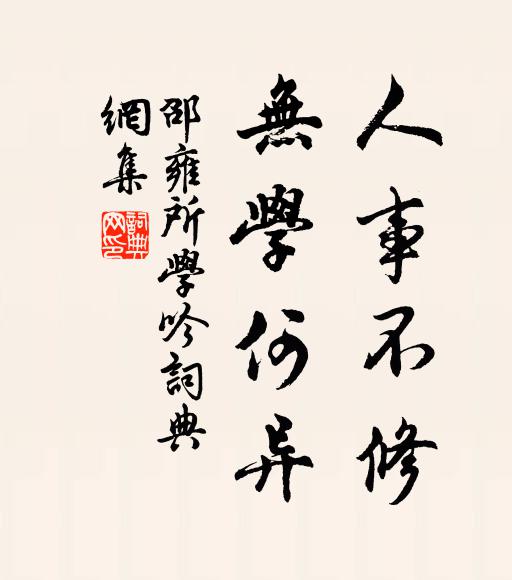 人事不修
無學何异
邵雍所學吟詞典
網集
詞典
网印